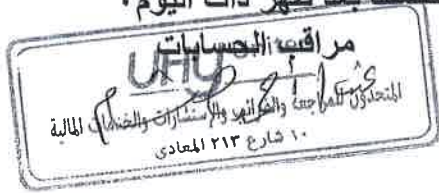 بعد ظهر ذات اليوم .
مراقب الحسابات
UHY
المتحدون للمراجعة والضرائب والإستشارات والخدمات المالية
١٠ شارع ٢١٣ المعادى